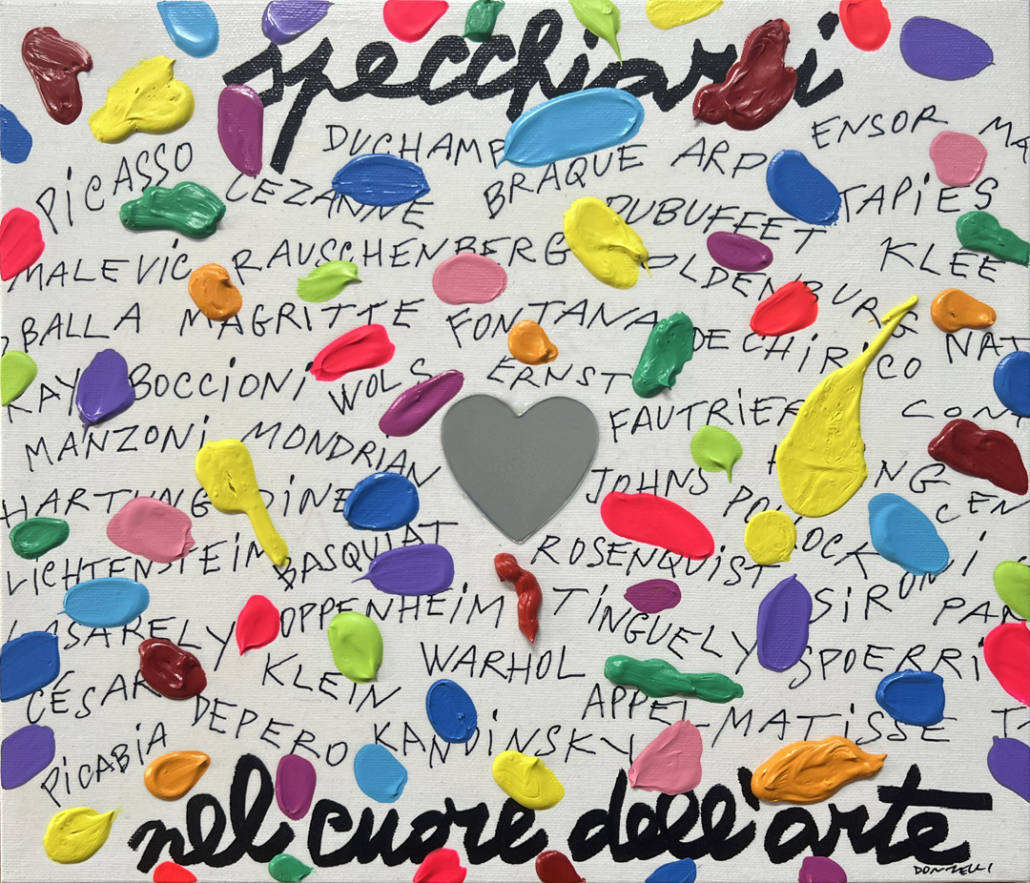 specchiarsi
DUCHAMP ENSOR MA
PiCASSO BRAQUE ARP
CEZANNE DUBUFFET TAPiES
MALEViC RAUSCHENBERG OLDENBURG KLEE
BALLA MAGRITTE FONTANA DE CHiRiCO NAT
RAY BOCCiONi WOLS ERNST
MANZONi MONDRiAN FAUTRiER CON
HARTUNG DiNE JOHNS POLLOCK CEN
LiCHTENSTEiN BASQUiAT ROSENQUiST SiRONi
VASARELY OPPENHEiM TiNGUELY PAN
CÉSAR KLEiN WARHOL SPOERRi
DEPERO APPEL MATiSSE TA
PiCABiA KANDiNSKY
nel cuore dell'arte
DONZELLI